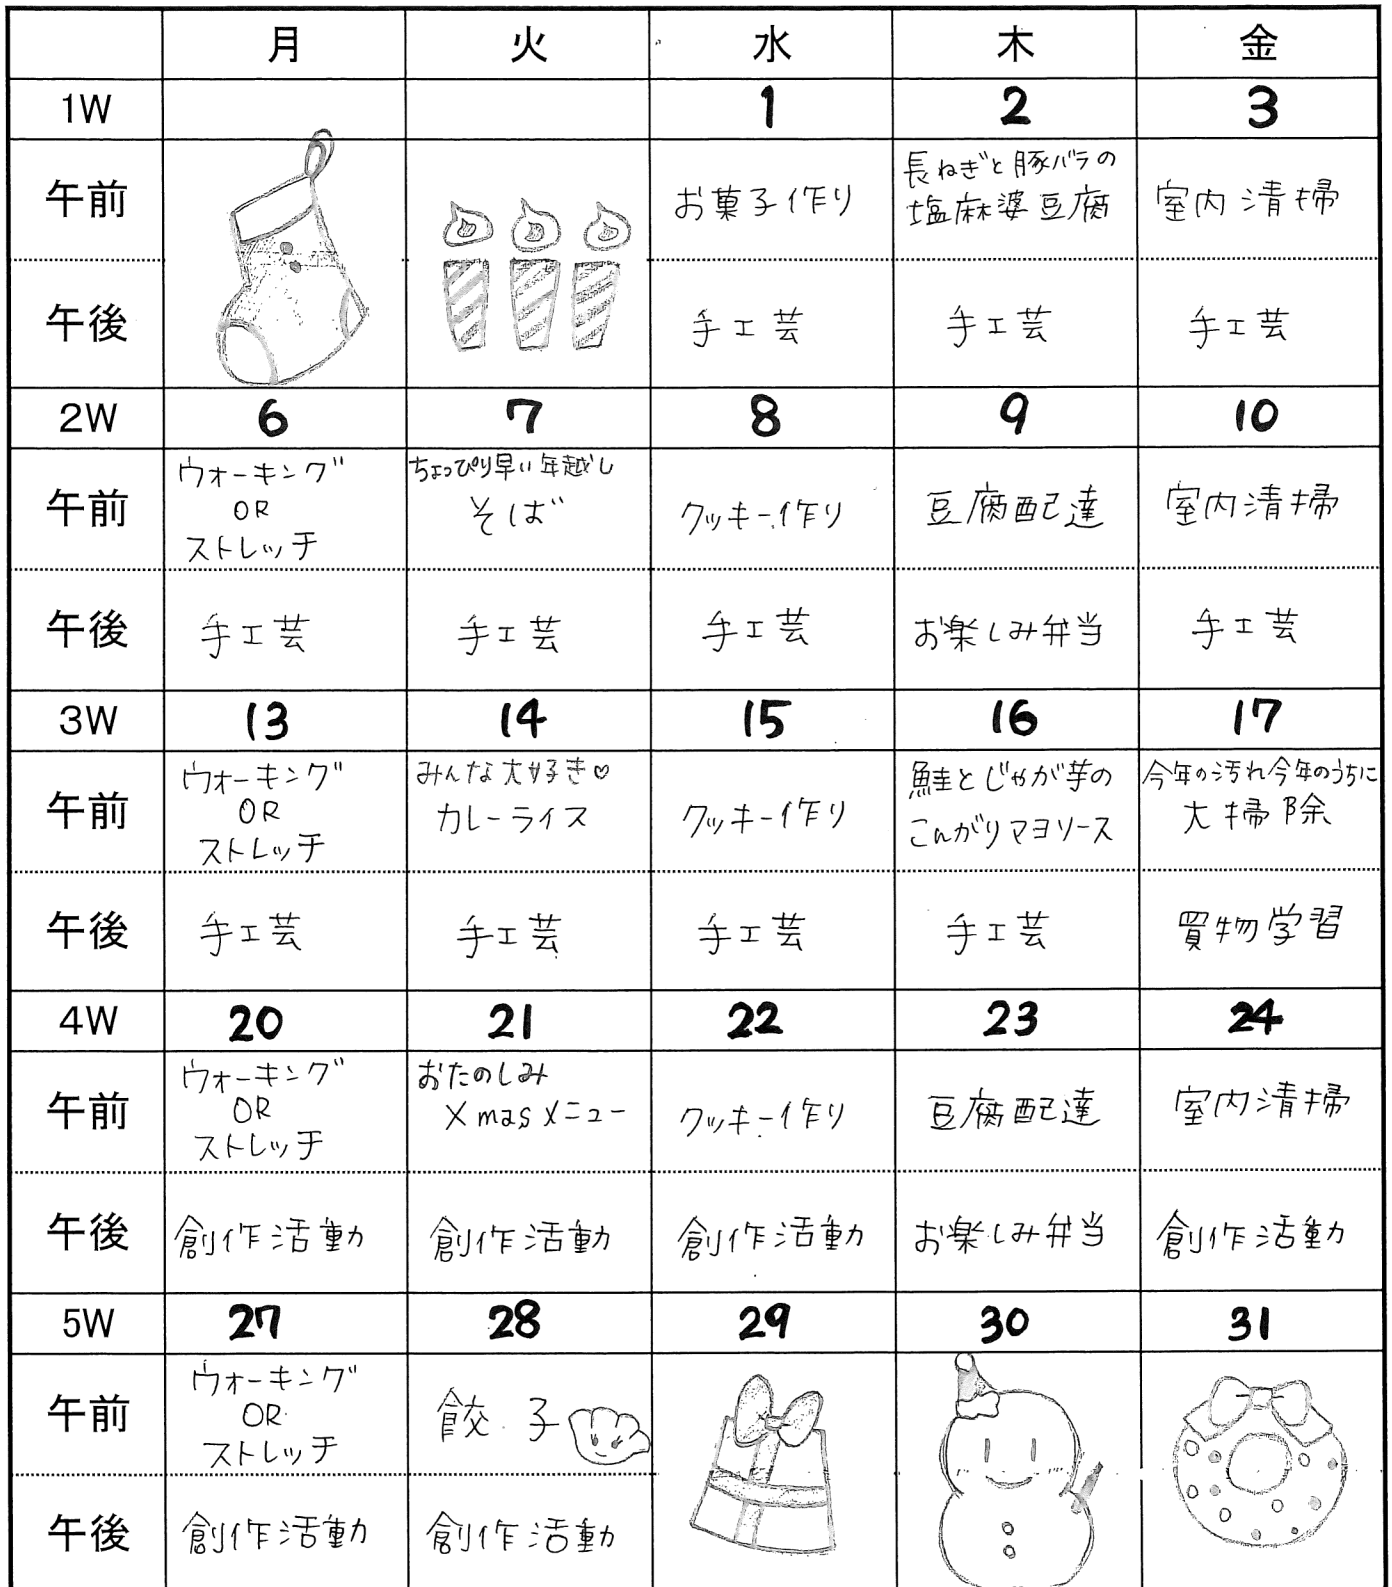 月 火 水 木 金
1W 1 2 3
午前
お菓子作り
長ねぎと豚バラの
塩麻婆豆腐
室内清掃
午後
手工芸
手工芸
手工芸
2W 6 7 8 9 10
午前
ウォーキング
OR
ストレッチ
ちょっぴり早い年越し
そば
クッキー作り
豆腐配達
室内清掃
午後
手工芸
手工芸
手工芸
お楽しみ弁当
手工芸
3W 13 14 15 16 17
午前
ウォーキング
OR
ストレッチ
みんな大好き♡
カレーライス
クッキー作り
鮭とじゃが芋の
こんがりマヨソース
今年の汚れ今年のうちに
大掃除
午後
手工芸
手工芸
手工芸
手工芸
買物学習
4W 20 21 22 23 24
午前
ウォーキング
OR
ストレッチ
おたのしみ
Xmasメニュー
クッキー作り
豆腐配達
室内清掃
午後
創作活動
創作活動
創作活動
お楽しみ弁当
創作活動
5W 27 28 29 30 31
午前
ウォーキング
OR
ストレッチ
餃子
午後
創作活動
創作活動